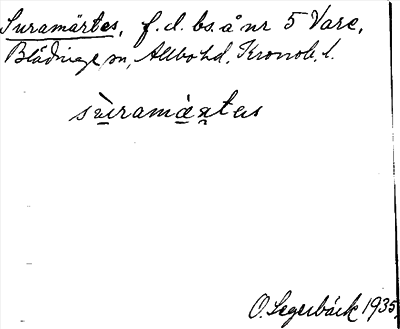 Suramärtes, f.d. bs. å nr 5 Vare,
Blädinge sn, Allbo hd, Kronob. l.
sùramæ̀rtəs
O. Segerbäck 1935.